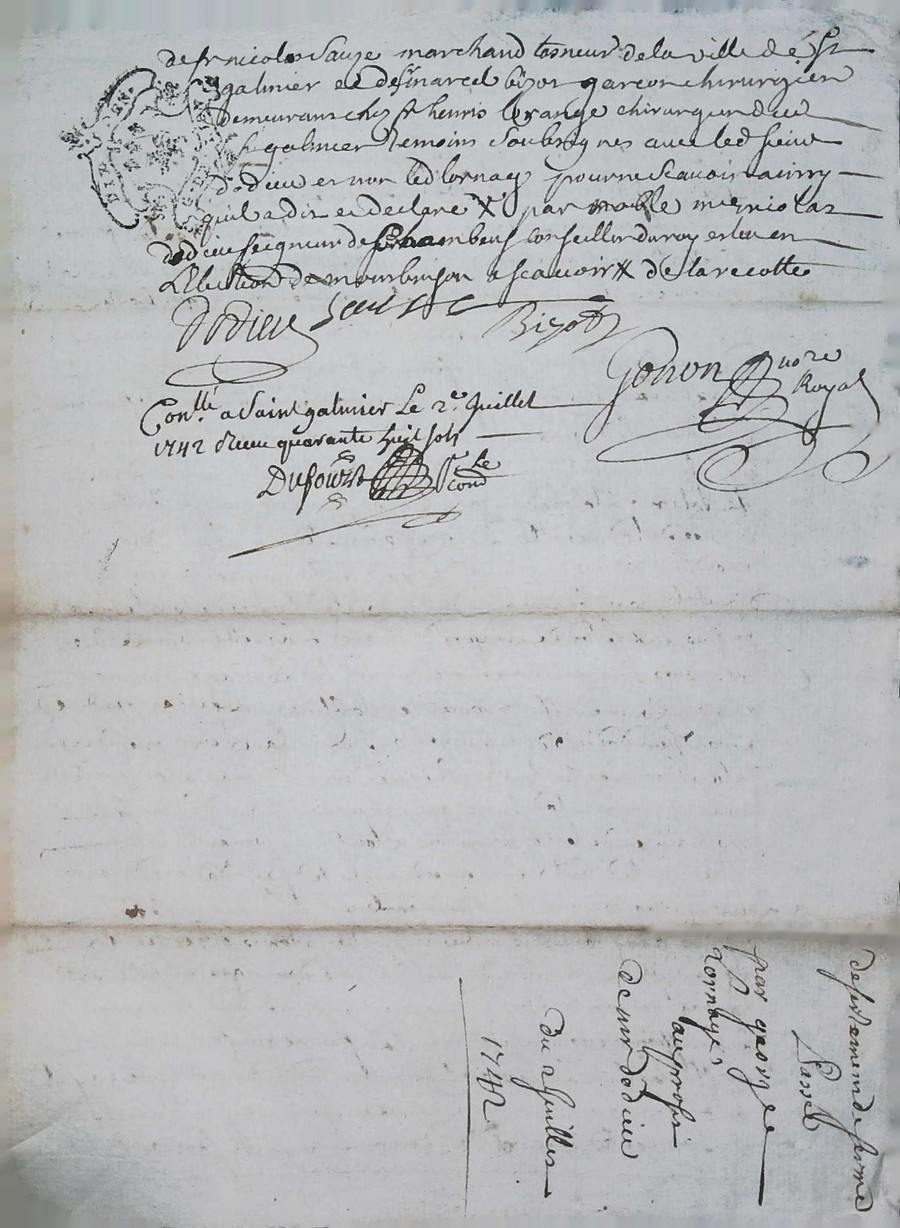 de sr nicolas Sauze marchand tasneur de la ville de St
galmier et de sr marcel bizot garcon chirurgien
demeurant chez sr henris lorange chirurgien dud
st galmier temoins Soubsignes avec led sieur
dodieu et non led tornay pour ne scavoir ainsy
quil a dit et declaré X par noble me nicolas
dodieu seigneur de conseiller du roy esleu en
L'Election de montbrison a scavoir X de la recolte
dodieu Sauze Bizot
Gonon nore
Royal
Conllé a Saint galmier Le 2e Juillet
1742 Reçu quarante huit sols
Dufour
departement de ferme
Passé
par
tornayre
au profit
de mr dodieu
du 2 Juillet
1742